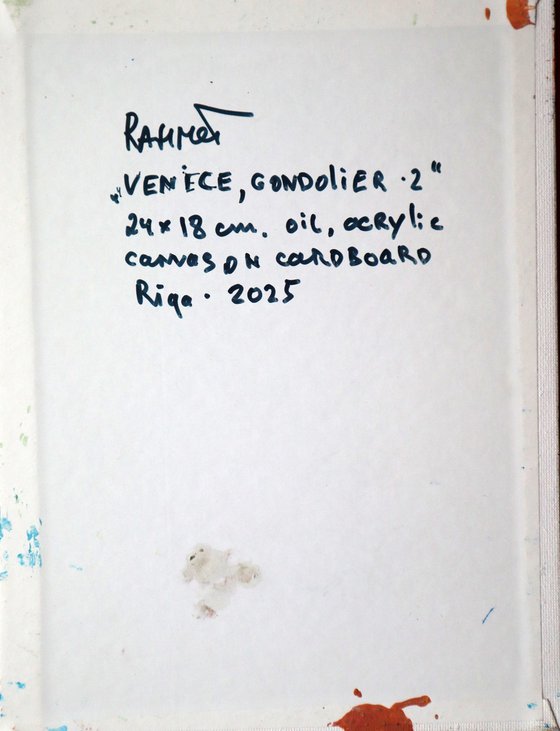 RAHMET
„VENICE, GONDOLIER · 2"
24x18 cm. oil, acrylic
canvas ON CARDBOARD
Riga · 2025